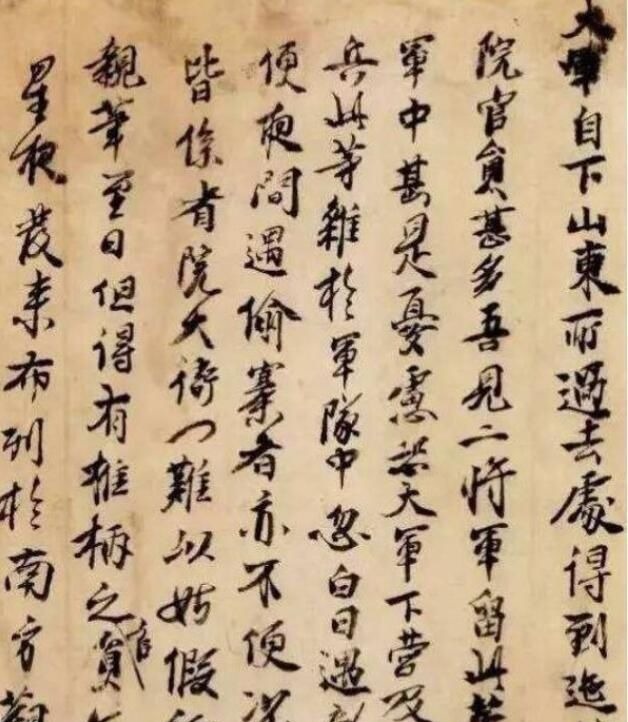 大軍自下山東所過去處得到迤
院官員甚多吾見二將軍留此等
軍中甚是憂慮恐大軍下營及
兵此等雜於軍隊中忽白日遇
便夜間遇偷寨者亦不便況
皆係省院大衙門難以姑假
親筆至日但得有椎柄之官員
星夜發來布列於南方觀